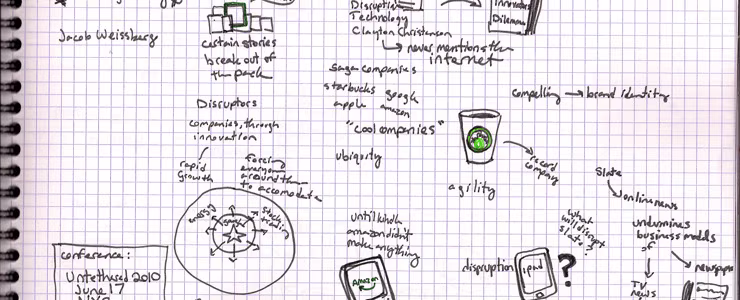 Jacob Weissberg
certain stories
break out of
the pack
Disruptors
companies, through
innovation
rapid
growth
forcing
everyone
around them
to accomodate
energy
stock
trading
conference:
Untethered 2010
June 17
NYC
Disruptive
Technology
Clayton Christensen
never mentions the
internet
Innovators
Dilemma
saga companies
starbucks google
apple amazon
"cool companies"
ubiquity
until kindle
amazon didn't
make anything
Amazon
compelling → brand identity
agility
record
company
Slate
online news
undermines
business models
of
newspaper
TV
news
what
will disrupt
slate?
dispruption
ipad
?